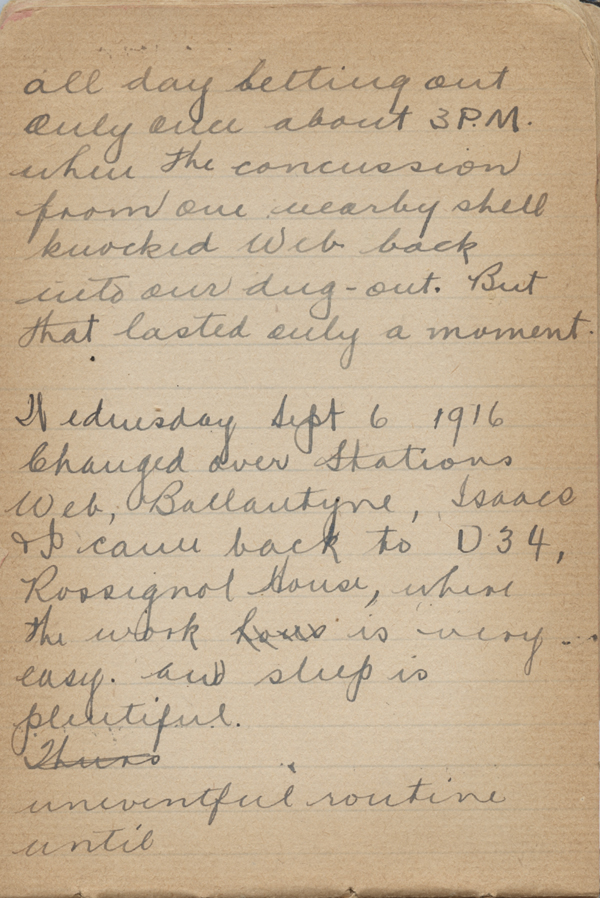 all day betting out
only once about 3 P.M.
when the concussion
from one nearby shell
knocked Web back
into our dug-out. But
that lasted only a moment.
Wednesday Sept 6 1916
Changed over Stations
Web, Ballantyne, Isaacs
& I came back to U 34,
Rossignol House, where
the work is very
easy. and sleep is
plentiful.
Thurs
uneventful routine
until